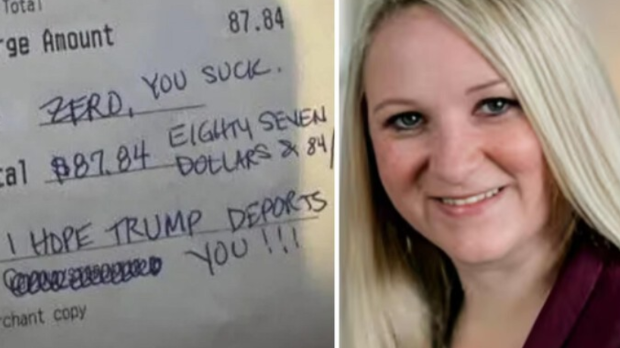 Total
rge Amount 87.84
ZERO, YOU SUCK.
tal $87.84 EIGHTY SEVEN
DOLLARS & 84/
I HOPE TRUMP DEPORTS
YOU !!!
rchant copy